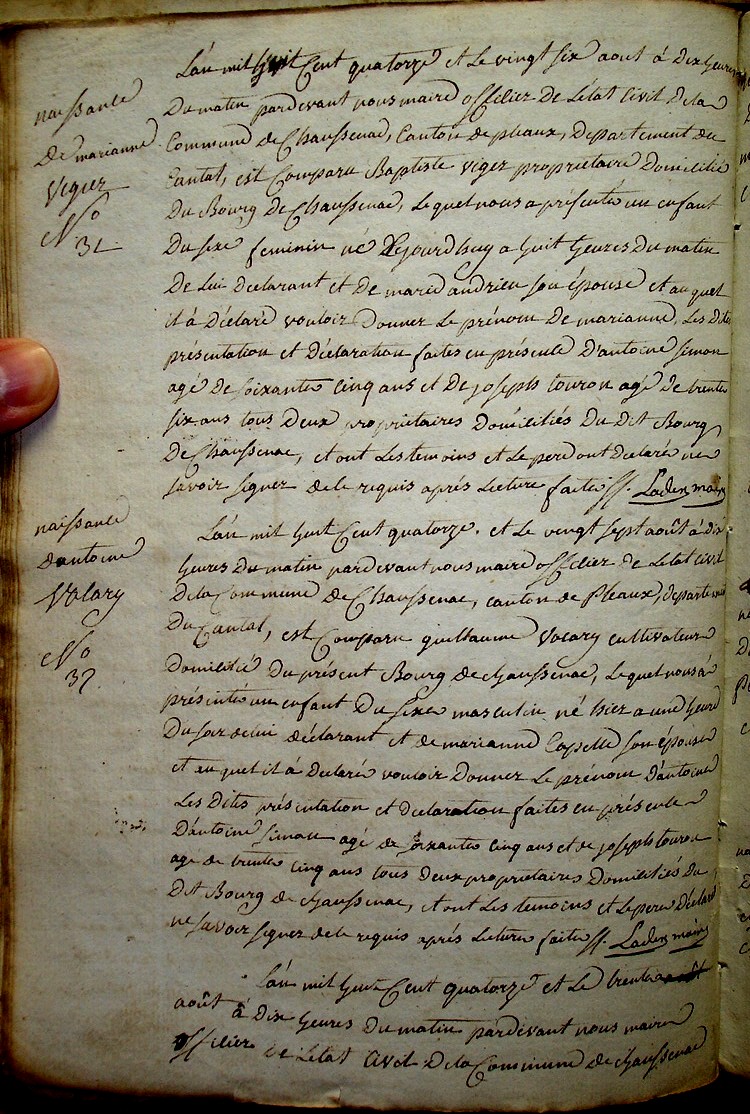 naissance
de marianne
Vigier
No
31
L'an mil huit Cent quatorze et Le vingt six aout à dix heures
Du matin pardevant nous maire officier De L'état Civil De la
Commune de Chaussenac, Canton de pleaux, Departement du
Cantal, est Comparu Baptiste vigez proprietaire Domicilié
Du Bourg De Chaussenac, Lequel nous a présenté un enfant
Du sexe feminin né Cejourdhuy a huit heures Du matin
De Lui Declarant et De marie andrieu son épouse et auquel
il à Déclaré vouloir Donner Le prénom De marianne, Les Dites
présentation et Déclaration faites en présence D'antoine Simon
agé De soixante Cinq ans et De joseph touron agé de trente
six ans tous Deux proprietaires Domiciliés Du Dit Bourg
De Chaussenac, et ont Les temoins et Le pere ont declaré ne
savoir signer de le requis après Lecture faite
naissance
d'antoine
Valary
No
32
L'an mil huit Cent quatorze. et Le vingt sept août à dix
heures Du matin pardevant nous maire officier de L'état Civil
De la Commune de Chaussenac, canton de Pleaux, departement
Du Cantal, est Comparu guillaume Vacary cultivateur
Domicilié Du présent Bourg de chaussenac, Lequel nous à
présenté un enfant Du sexe masculin né hier a une heure
Du soir de lui déclarant et de marianne Capelle son épouse
et auquel il à Declaré vouloir Donner Le prénom D'antoine
Les Dites présentation et declaration faites en présence
D'antoine Simon agé de soixante cinq ans et de joseph touron
age de trente cinq ans tous deux proprietaires Domiciliés Du
Dit Bourg de chaussenac, et ont Les temoins et Le pere Déclaré
ne savoir signer de le requis après Lecture faite
L'an mil huit Cent quatorze et Le trente
août à Dix heures Du matin pardevant nous maire
officier de L'état Civil De la Commune de chaussenac